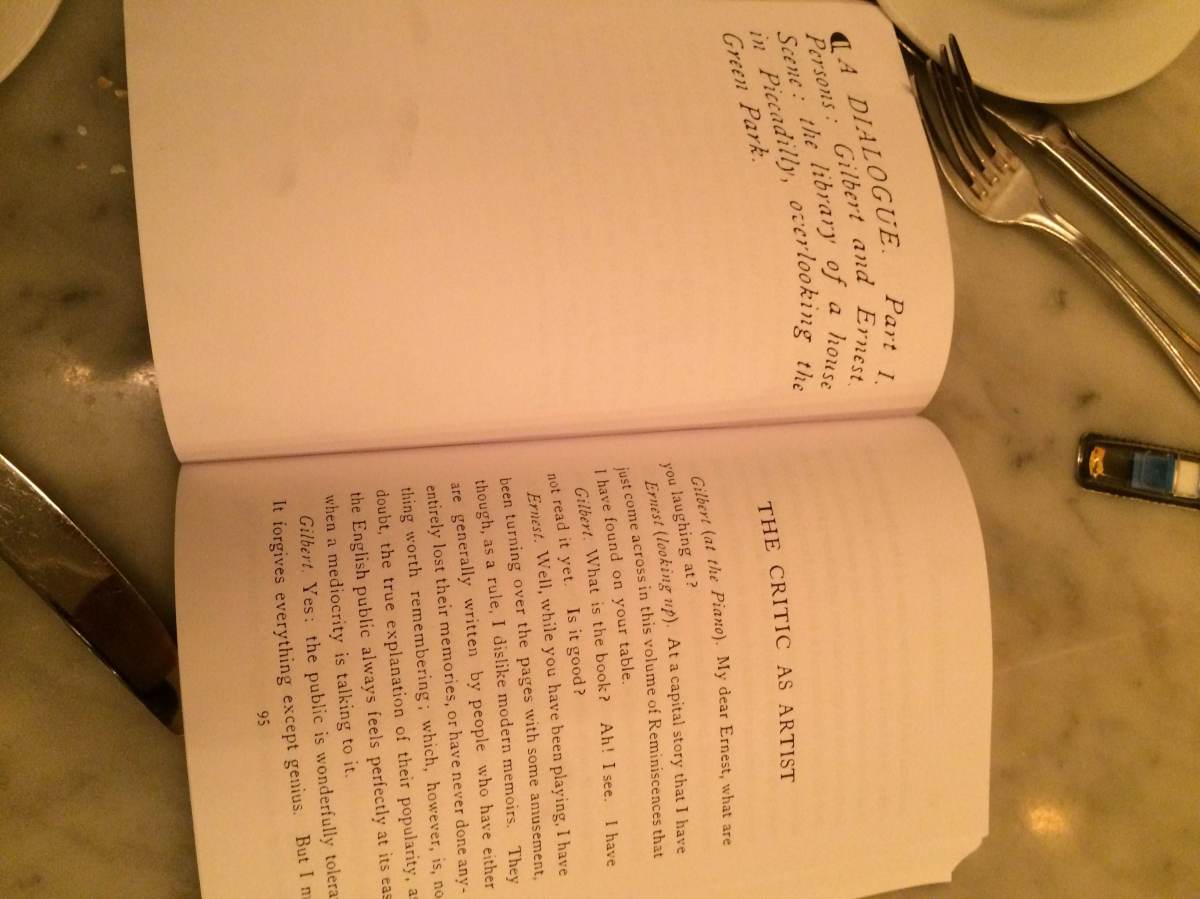 A DIALOGUE. Part I.
Persons: Gilbert and Ernest.
Scene: the library of a house
in Piccadilly, overlooking the
Green Park.
THE CRITIC AS ARTIST
Gilbert (at the Piano). My dear Ernest, what are
you laughing at?
Ernest (looking up). At a capital story that I have
just come across in this volume of Reminiscences that
I have found on your table.
Gilbert. What is the book? Ah! I see. I have
not read it yet. Is it good?
Ernest. Well, while you have been playing, I have
been turning over the pages with some amusement,
though, as a rule, I dislike modern memoirs. They
are generally written by people who have either
entirely lost their memories, or have never done any-
thing worth remembering; which, however, is, no
doubt, the true explanation of their popularity, as
the English public always feels perfectly at its eas
when a mediocrity is talking to it.
Gilbert. Yes: the public is wonderfully tolera
It forgives everything except genius. But I m
95